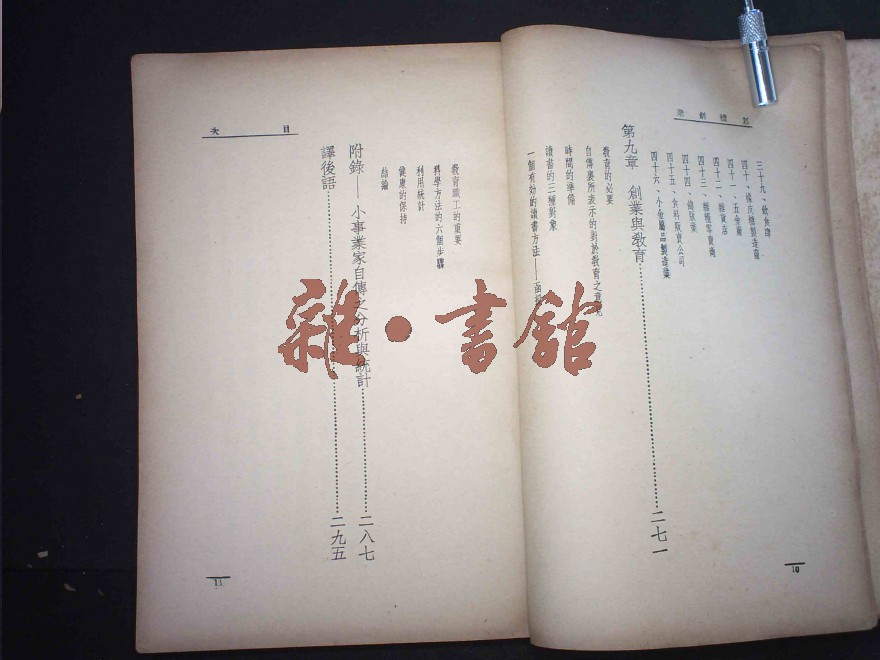 三十九、飲食肆
四十、橡皮糖製造廠
四十一、五金廠
四十二、雜貨店
四十三、雜糧零賣商
四十四、織版業
四十五、食料販賣公司
四十六、小金屬品製造業
第九章 創業與教育……二七一
教育的必要
自傳裏所表示的對於教育之意見
時間的準備
讀書的三種對象
一個有効的讀書方法——
10
目次
教育職工的重要
科學方法的六個步驟
利用統計
健康的保持
結論
附錄——小事業家自傳之分析與統計……二八七
譯後語……二九五
11
雜·書館